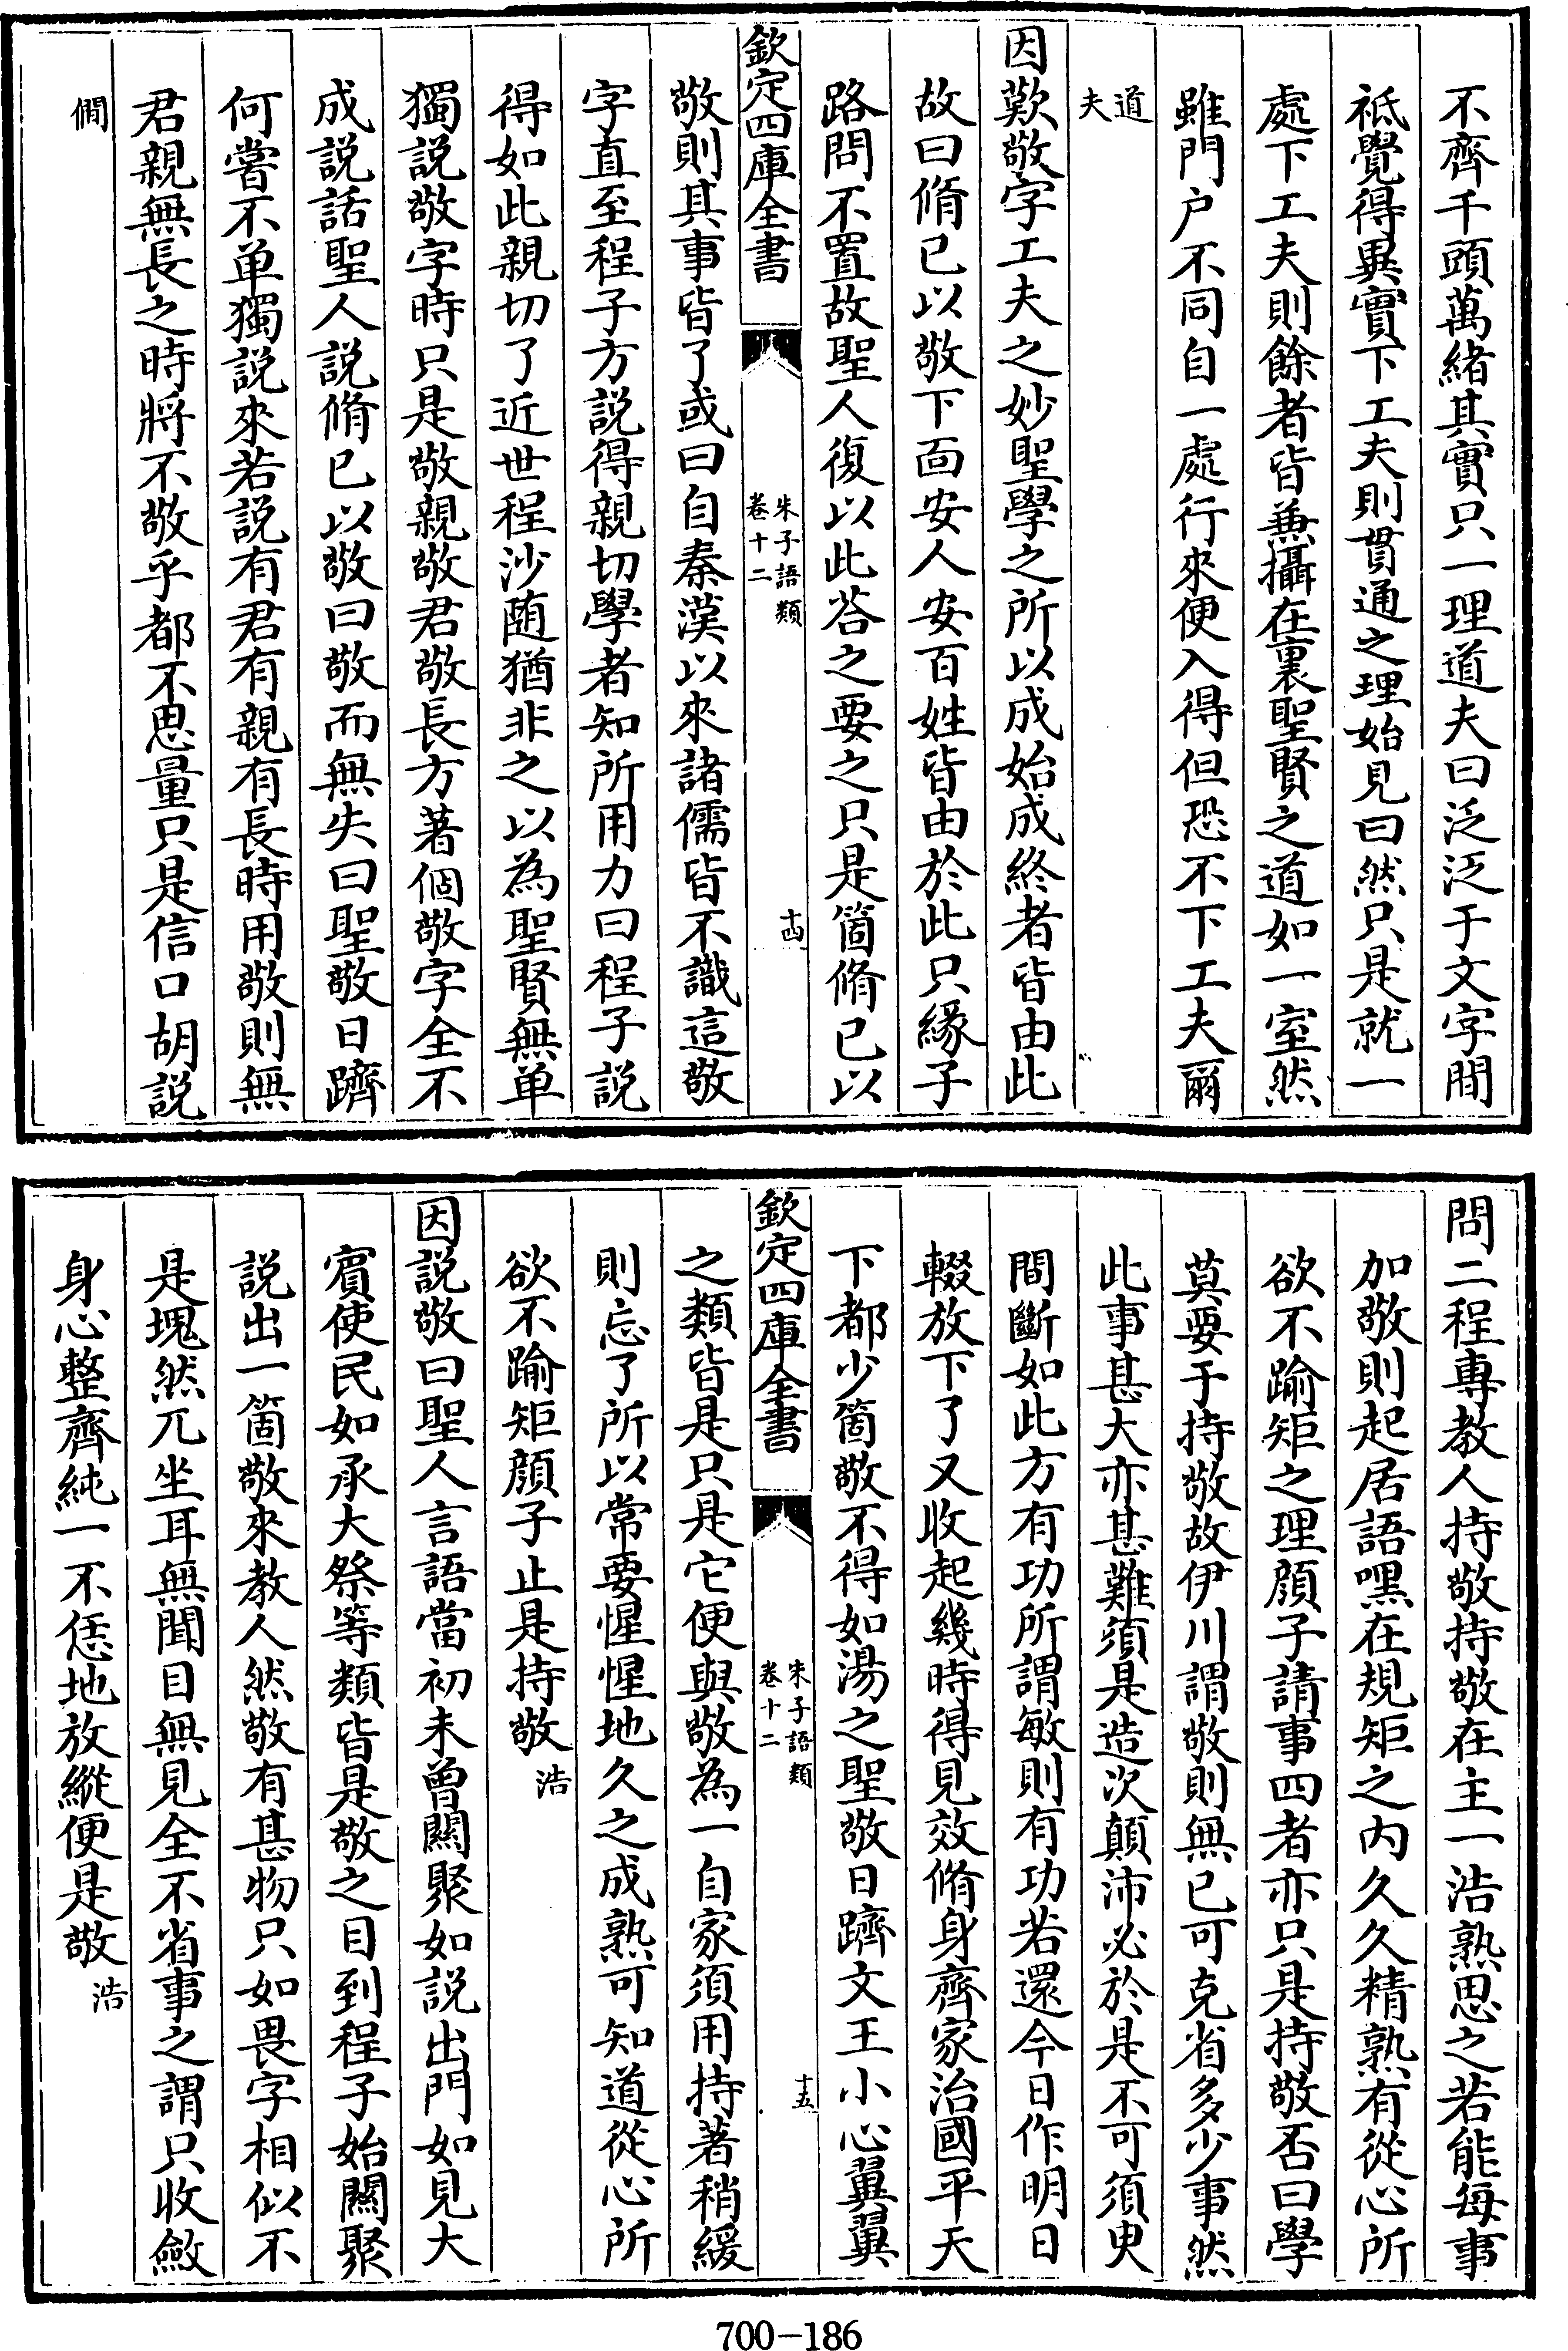 不齊千頭萬緒其實只一理道夫曰泛泛于文字間
祗覺得異實下工夫則貫通之理始見曰然只是就一
處下工夫則餘者皆兼攝在裏聖賢之道如一室然
雖門户不同自一處行來便入得但恐不下工夫爾
道
夫
因歎敬字工夫之妙聖學之所以成始成終者皆由此
故曰脩已以敬下面安人安百姓皆由於此只緣子
路問不置故聖人復以此答之要之只是箇脩已以
欽定四庫全書
朱子語類
卷十二
十四
敬則其事皆了或曰自秦漢以來諸儒皆不識這敬
字直至程子方説得親切學者知所用力曰程子説
得如此親切了近世程沙随猶非之以為聖賢無单
獨説敬字時只是敬親敬君敬長方著個敬字全不
成説話聖人説脩已以敬曰敬而無失曰聖敬日躋
何嘗不单獨説來若説有君有親有長時用敬則無
君親無長之時將不敬乎都不思量只是信口胡説
僩
問二程專教人持敬持敬在主一浩熟思之若能每事
加敬則起居語嘿在規矩之内久久精熟有從心所
欲不踰矩之理顔子請事四者亦只是持敬否曰學
莫要于持敬故伊川謂敬則無已可克省多少事然
此事甚大亦甚難須是造次顛沛必於是不可須臾
間斷如此方有功所謂敏則有功若還今日作明日
輟放下了又收起幾時得見效脩身齊家治國平天
下都少箇敬不得如湯之聖敬日躋文王小心翼翼
欽定四庫全書
朱子語類
卷十二
十五
之類皆是只是它便與敬為一自家須用持著稍緩
則忘了所以常要惺惺地久之成熟可知道從心所
欲不踰矩顔子止是持敬浩
因説敬曰聖人言語當初未曾關聚如説出門如見大
賓使民如承大祭等類皆是敬之目到程子始關聚
説出一箇敬來教人然敬有甚物只如畏字相似不
是塊然兀坐耳無聞目無見全不省事之謂只收斂
身心整齊純一不恁地放縱便是敬浩
700-186